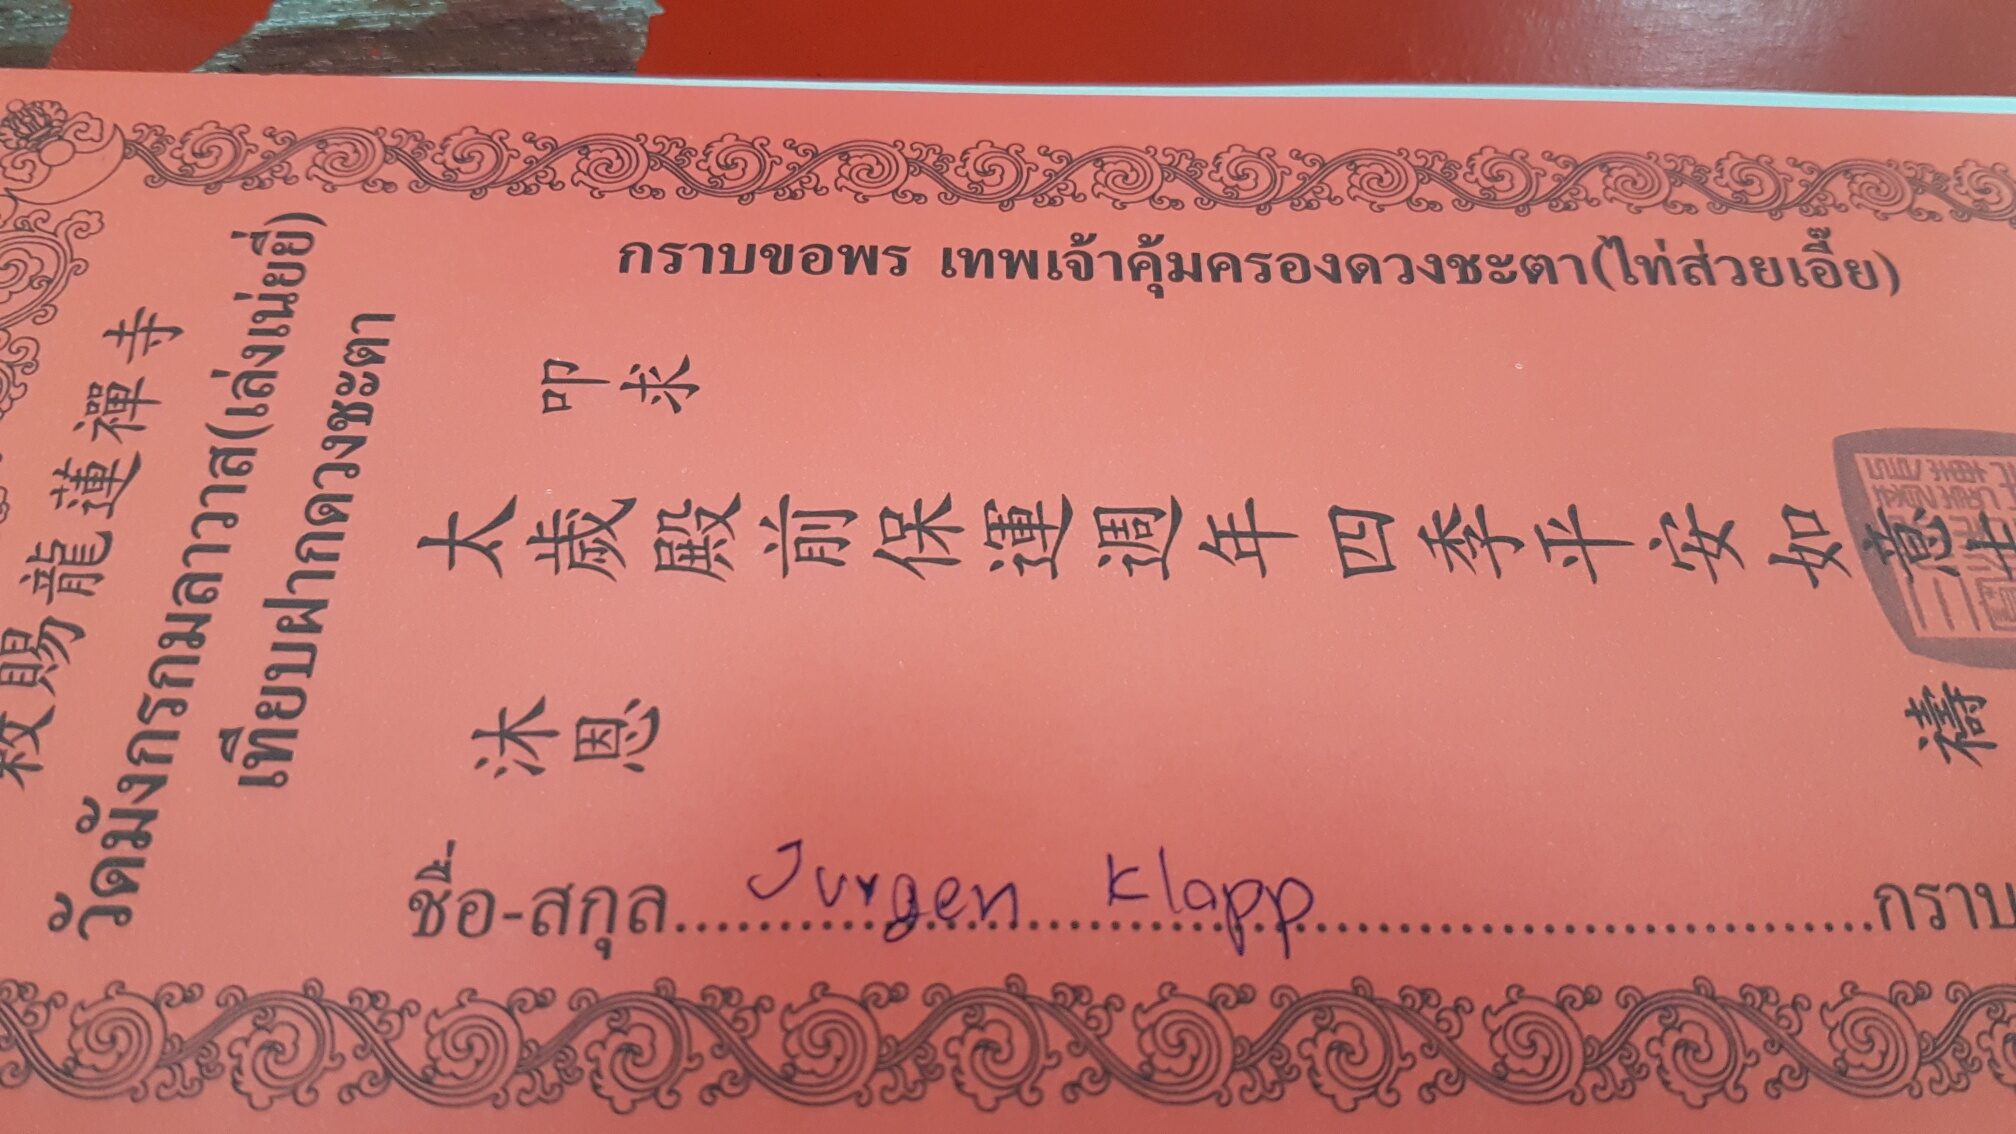 敕賜龍蓮禪寺
วัดมังกรกมลาวาส(เล่งเน่ยยี่)
เทียบฝากดวงชะตา
กราบขอพร เทพเจ้าคุ้มครองดวงชะตา(ไท่ส่วยเอี๊ย)
叩求
太歲殿前保運週年四季平安如意
沐恩
禱
ชื่อ-สกุล Jurgen Klapp กราบ